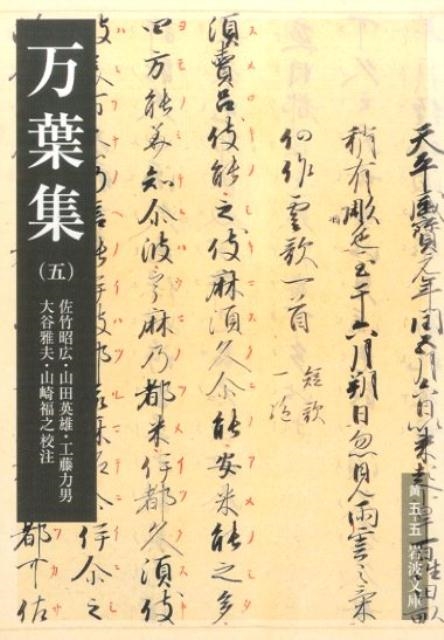 万葉集
(五)
佐竹昭広・山田英雄・工藤力男
大谷雅夫・山崎福之校注
黄 五-五 岩波文庫
天平感寶元年閏五月六日以来起
稍有彫色至于六月朔日忽見雨雲之氣
仍作雲歌一首 短歌一絶
須賣呂伎能之伎麻須久尓能安米能之多
四方能美知尓波宇麻乃都米伊都久須伎